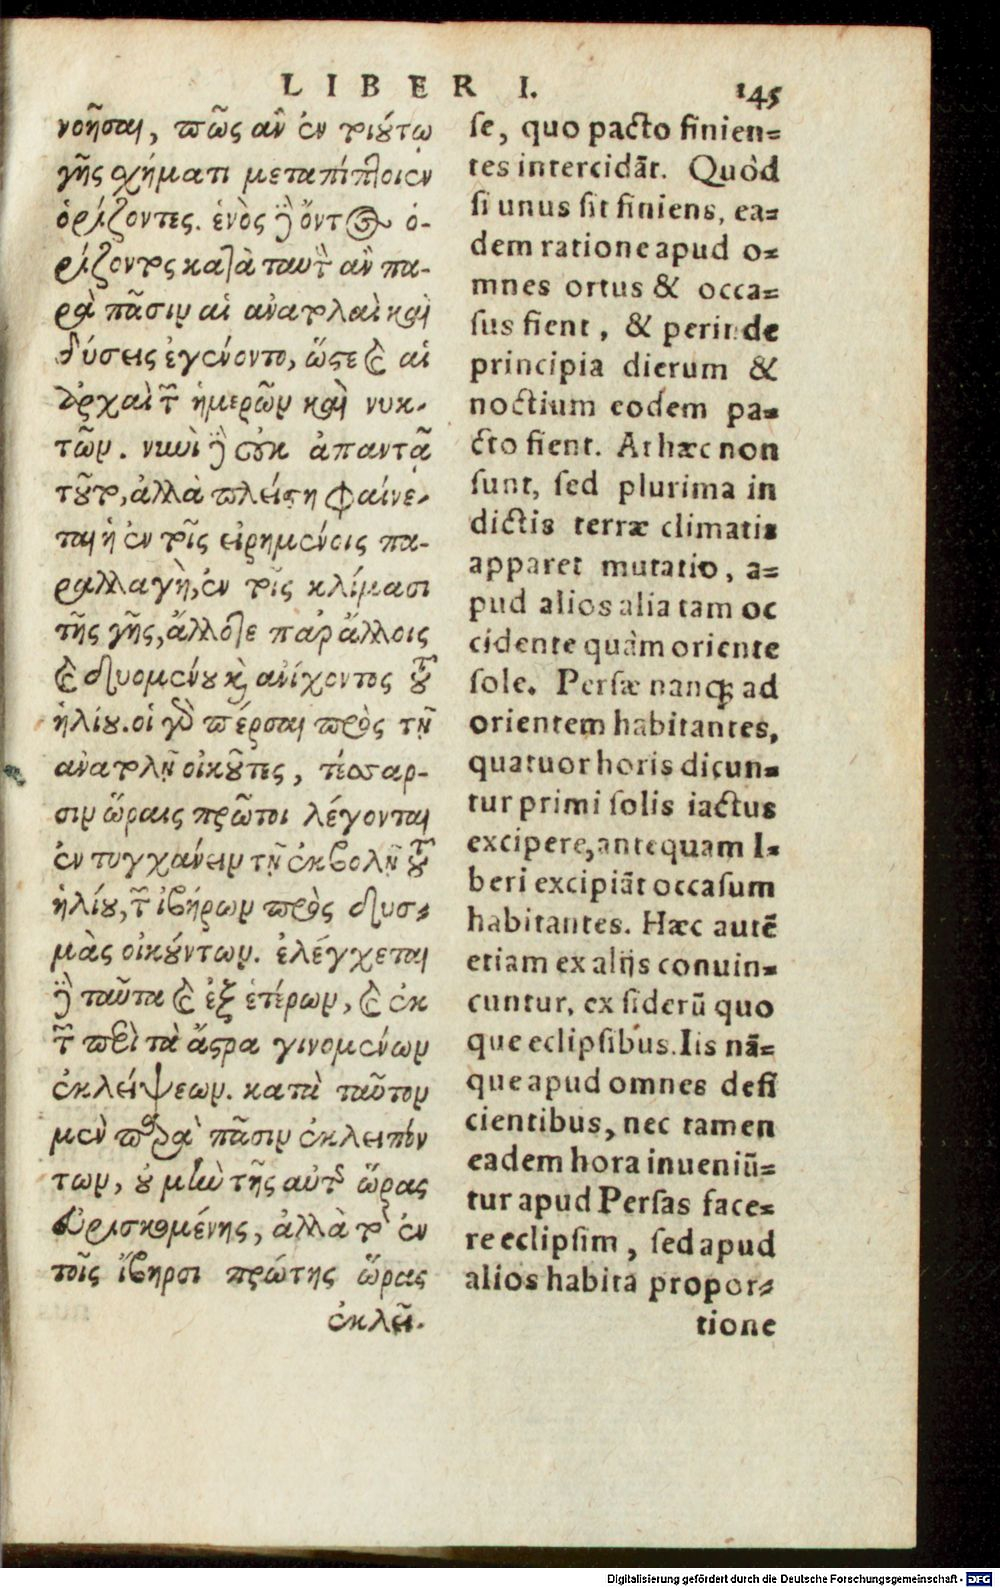 LIBER I. 145
νοῆσαι, πῶς ἂν ἐν τοιούτῳ
γῆς σχήματι μεταπίπτοιεν
ὁρίζοντες. ἑνὸς γὸ ὄντος ὁ-
ρίζοντος κατὰ ταυτὸ ἂν πα-
ρὰ πᾶσιν αἱ ἀνατολαὶ καὶ
δύσεις ἐγένοντο, ὥστε καὶ αἱ
ἀρχαὶ τῶν ἡμερῶν καὶ νυκ-
τῶν. νυνὶ δὲ οὐκ ἀπαντᾷ
τοῦτο, ἀλλὰ πλείστη φαίνε-
ται ἡ ἐν τοῖς εἰρημένοις πα-
ραλλαγὴ, ἐν τοῖς κλίμασι
τῆς γῆς, ἄλλοτε παρ ἄλλοις
καὶ δυομένου καὶ ἀνίχοντος τοῦ
ἡλίου. οἱ γὸ πέρσαι πρὸς τῇ
ἀνατολῇ οἰκοῦντες, τέσσαρ-
σιν ὥραις πρῶτοι λέγονται
ἐντυγχάνειν τῇ ἐκβολῇ τοῦ
ἡλίου, τῶν ἰβήρων πρὸς δυσ-
μὰς οἰκούντων. ἐλέγχεται
δὲ ταῦτα καὶ ἐξ ἑτέρων, καὶ ἐκ
τῶν περὶ τὰ ἄστρα γινομένων
ἐκλείψεων. κατὰ ταῦτον
μὲν παρὰ πᾶσιν ἐκλειπόν
των, οὐ μὴν τῆς αὐτῆς ὥρας
εὑρισκομένης, ἀλλὰ τὸ ἐν
τοῖς ἴβηρσι πρώτης ὥρας
ἐκλεῖ-
se, quo pacto finien=
tes intercidāt. Quòd
si unus sit finiens, ea=
dem ratione apud o=
mnes ortus & occa=
sus fient, & perinde
principia dierum &
noctium eodem pa=
cto fient. At hæc non
sunt, sed plurima in
dictis terræ climatis
apparet mutatio, a=
pud alios alia tam oc
cidente quàm oriente
sole. Persæ nanq; ad
orientem habitantes,
quatuor horis dicun=
tur primi solis iactus
excipere, antequam I=
beri excipiāt occasum
habitantes. Hæc autē
etiam ex alijs conuin=
cuntur, ex siderū quo
que eclipsibus. Iis nā=
que apud omnes defi
cientibus, nec tamen
eadem hora inueniū=
tur apud Persas face=
re eclipsim, sed apud
alios habita propor=
tione
Digitalisierung gefördert durch die Deutsche Forschungsgemeinschaft - DFG